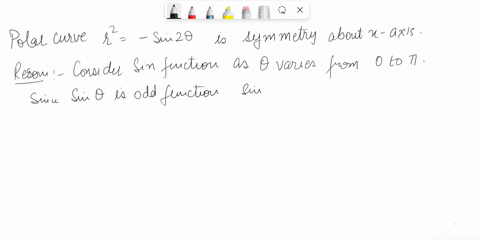 Polar curve r² = - Sin2θ is symmetry about x-axis.
Reason:- Consider Sin function as θ varies from 0 to π.
Since Sinθ is odd function Sin